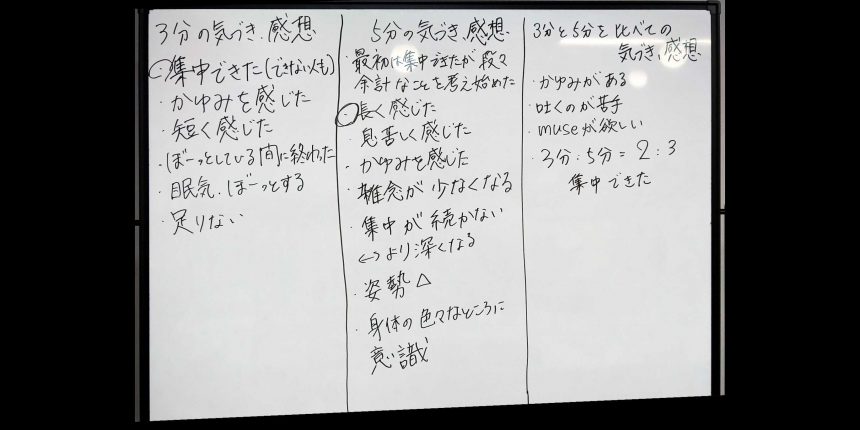 3分の気づき、感想
・集中できた(できない人も)
・かゆみを感じた
・短く感じた
・ぼーっとしている間に終わった
・眠気、ぼーっとする
・足りない
5分の気づき、感想
・最初は集中できたが段々
余計なことを考え始めた
・長く感じた
・息苦しく感じた
・かゆみを感じた
・雑念が少なくなる
・集中が続かない
↔より深くなる
・姿勢△
・身体の色々なところに
意識
3分と5分を比べての
気づき、感想
・かゆみがある
・吐くのが苦手
・museが欲しい
・3分:5分=2:3
集中できた